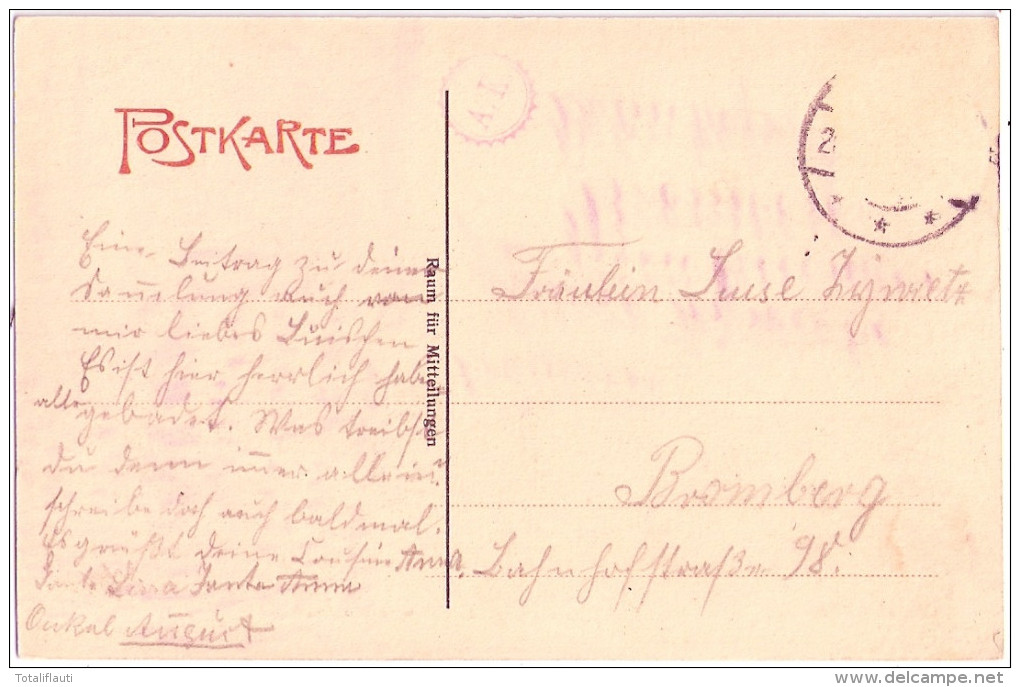 POSTKARTE
A. I.
2
Eine Beitrag zu deiner
Samelung auch von
mir liebes Luischen
Es ist hier herrlich habe
alle gebadet. Was treibst
du denn imer allein?
schreibe doch auch baldmal.
Es grüßt deine Cousine Anna.
Tante Lina Tante Anna
Onkel August
Raum für Mitteilungen
Fräulein Luise
Bromberg
Bahnhofstraße 98.
Totaliflauti
delcampe.net